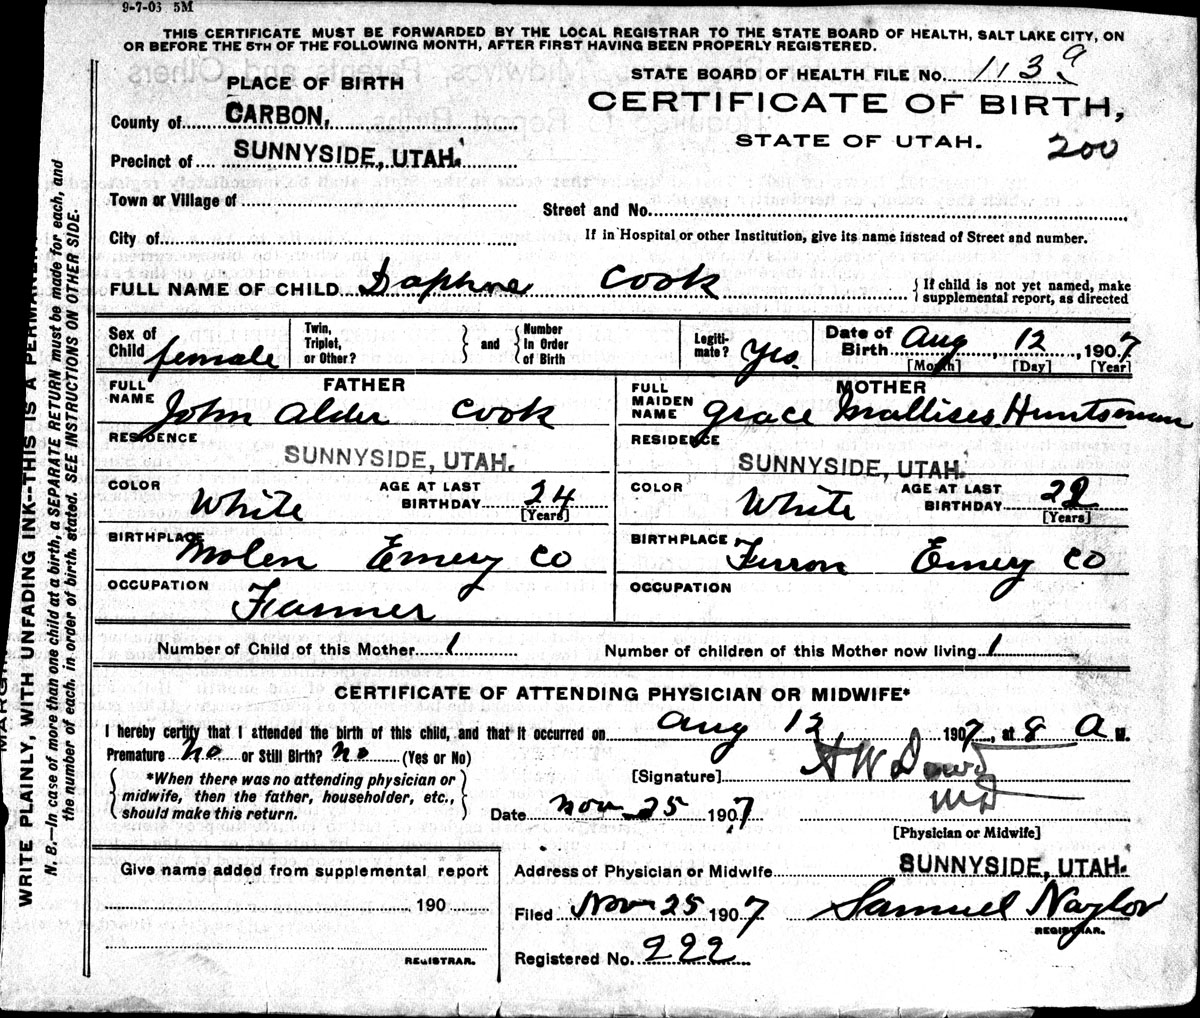 9-7-03 5M
THIS CERTIFICATE MUST BE FORWARDED BY THE LOCAL REGISTRAR TO THE STATE BOARD OF HEALTH, SALT LAKE CITY, ON
OR BEFORE THE 5TH OF THE FOLLOWING MONTH, AFTER FIRST HAVING BEEN PROPERLY REGISTERED.
STATE BOARD OF HEALTH FILE NO. 1139
PLACE OF BIRTH
CERTIFICATE OF BIRTH,
County of CARBON,
STATE OF UTAH. 200
Precinct of SUNNYSIDE, UTAH.
Town or Village of
Street and No.
City of
If in Hospital or other Institution, give its name instead of Street and number.
FULL NAME OF CHILD Daphne Cook
{ If child is not yet named, make
supplemental report, as directed
Sex of Child female
Twin, Triplet, or Other? } and { Number In Order of Birth
Legiti-mate? Yes.
Date of Birth Aug 12, 1907
[Month] [Day] [Year]
FATHER
FULL NAME John Alder Cook
RESIDENCE
SUNNYSIDE, UTAH.
COLOR White
AGE AT LAST BIRTHDAY 24
[Years]
BIRTHPLACE Molen Emery Co
OCCUPATION Farmer
MOTHER
FULL MAIDEN NAME Grace Huntsman
RESIDENCE
SUNNYSIDE, UTAH.
COLOR White
AGE AT LAST BIRTHDAY
[Years]
BIRTHPLACE Ferron Emery Co
OCCUPATION
Number of Child of this Mother 1
Number of children of this Mother now living 1
CERTIFICATE OF ATTENDING PHYSICIAN OR MIDWIFE*
I hereby certify that I attended the birth of this child, and that it occurred on Aug 12 1907, at 8 A M.
Premature No or Still Birth? No (Yes or No)
{ *When there was no attending physician or
midwife, then the father, householder, etc.,
should make this return. }
[Signature] H W Dowd
MD
Date Nov 25 1907
[Physician or Midwife]
Give name added from supplemental report
190
REGISTRAR.
Address of Physician or Midwife SUNNYSIDE, UTAH.
Filed Nov 25 1907 Samuel Naylor
REGISTRAR.
Registered No. 222
MARGIN
WRITE PLAINLY, WITH UNFADING INK--THIS IS A PERMANENT
N. B.--In case of more than one child at a birth, a SEPARATE RETURN must be made for each, and
the number of each, in order of birth, stated. SEE INSTRUCTIONS ON OTHER SIDE.